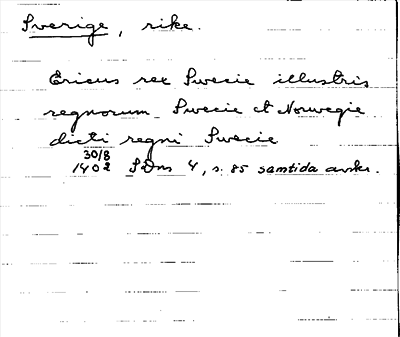 Sverige, rike.
Ericus rex Swecie illustris
regnorum Swecie et Norwegie
dicti regni Swecie
30/8
1402 SDns 4, s. 85 samtida avskr.